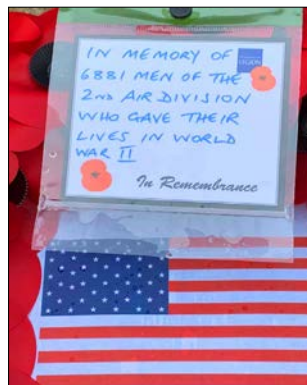 IN MEMORY OF
6881 MEN OF THE
2ND AIR DIVISION
WHO GAVE THEIR
LIVES IN WORLD
WAR II
In Remembrance